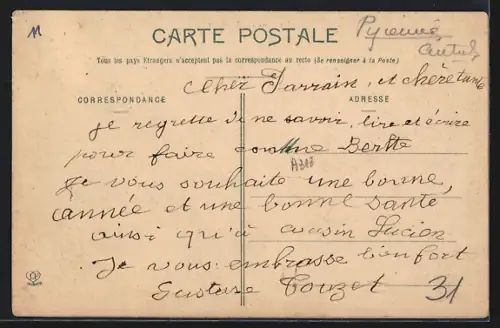 11
CARTE POSTALE
Pyrennés
Tous les pays Etrangers n'acceptent pas la correspondance au recto (Se renseigner à la Poste)
Cher Parrain, et chère tante
CORRESPONDANCE
ADRESSE
je regrette de ne savoir, lire et écrire
pour faire comme Berthe
A313
Je vous souhaite une bonne,
année et une bonne santé
ainsi qu'à cousin Lucien
Je vous embrasse bien fort
Gustave Touzet
31